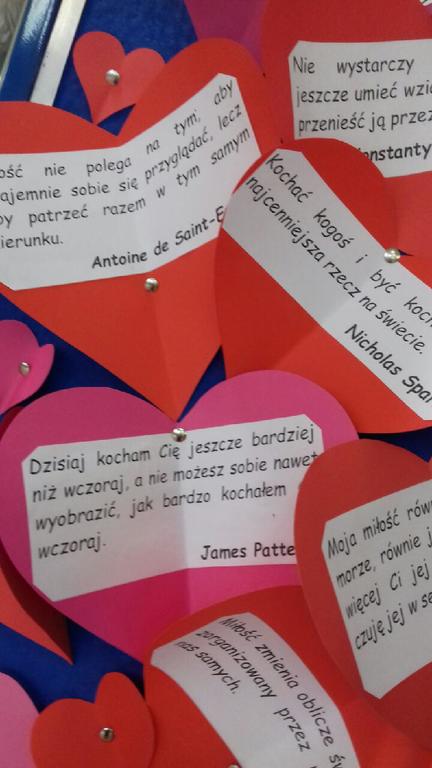 Nie wystarczy
jeszcze umieć
przenieść ją
nie polega na tym, aby
sobie się przyglądać, lecz
patrzeć razem w tym samym
Antoine de
Kochać kogoś i być
najcenniejsza rzecz na świecie.
Nicholas
Dzisiaj kocham Cię jeszcze bardziej
niż wczoraj, a nie możesz sobie nawet
wyobrazić, jak bardzo kochałem
wczoraj.
James
Moja miłość
morze, równie
więcej Ci jej
czuję jej w
Miłość zmienia oblicze
zorganizowany przez
nas samych.